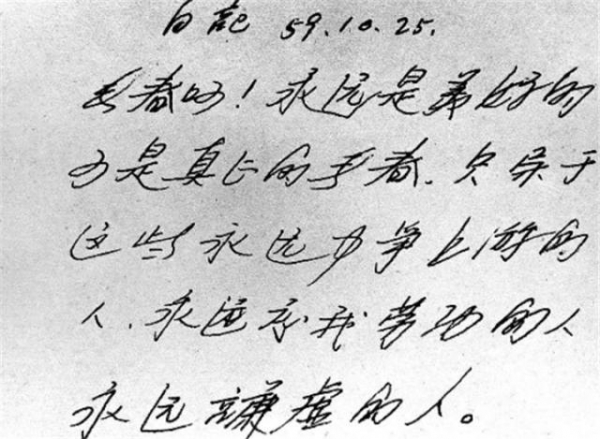 日記 59.10.25.
青春啊！永远是美好的
可是真正的青春，只属于
这些永远力争上游的
人，永远忘我劳动的人
永远謙虚的人。